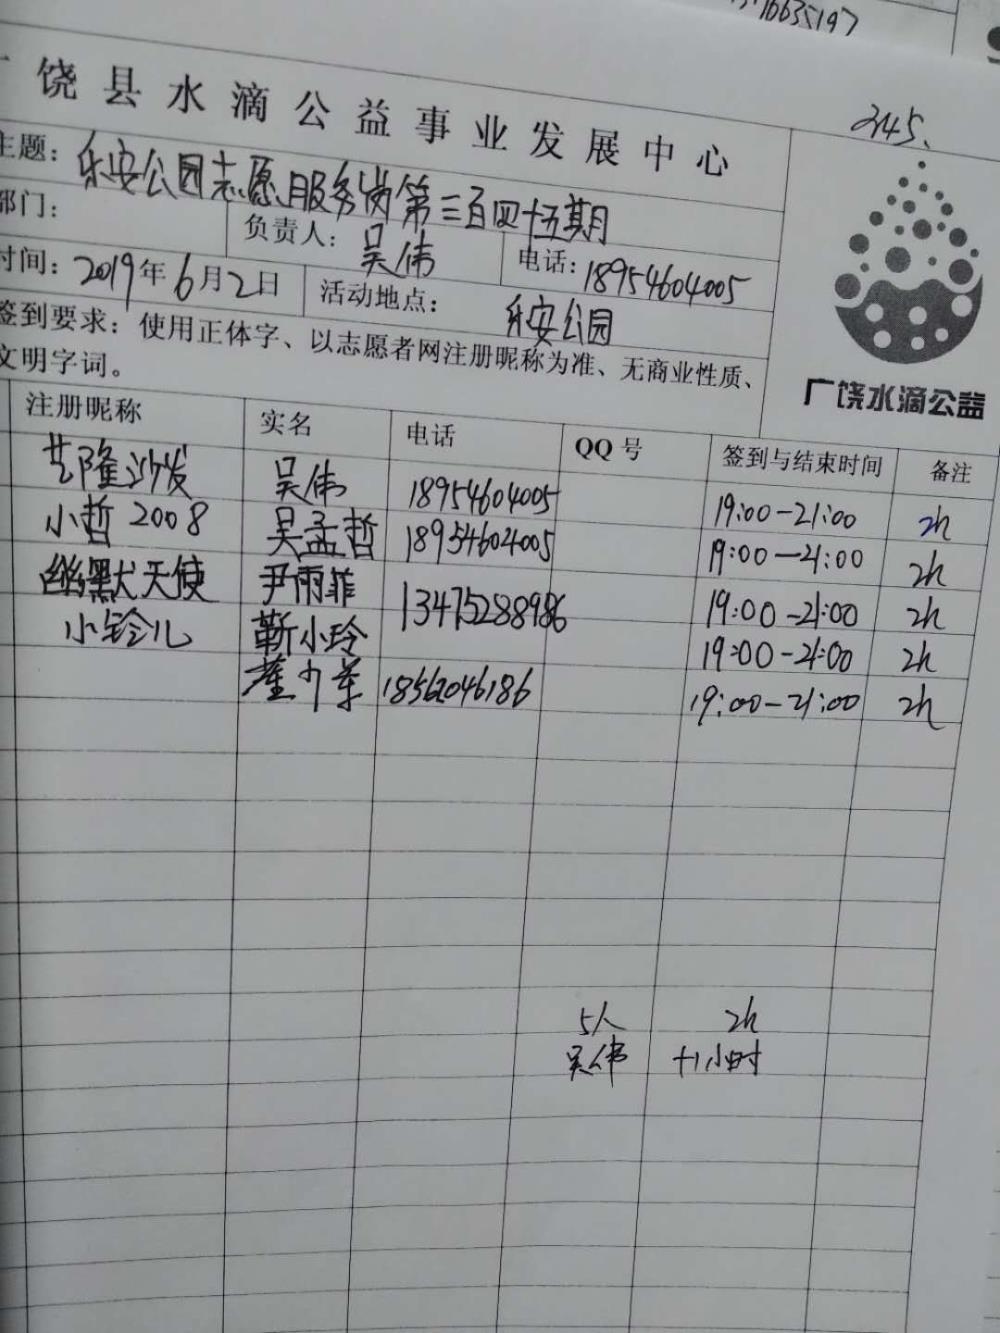 16635197
饶县水滴公益事业发展中心
345.
主题：乐安公园志愿服务岗第三百四十五期
部门： 负责人：吴伟 电话：18954604005
时间：2019年6月2日 活动地点：乐安公园
签到要求：使用正体字、以志愿者网注册昵称为准、无商业性质、
文明字词。
广饶水滴公益
注册昵称 实名 电话 QQ号 签到与结束时间 备注
艺隆沙发 吴伟 18954604005 19:00-21:00 2h
小哲2008 吴孟哲 18954604005 19:00-21:00 2h
幽默天使 尹雨菲 13475288986 19:00-21:00 2h
小铃儿 靳小玲 19:00-21:00 2h
18562046186 19:00-21:00 2h
5人 2h
吴伟 +1小时